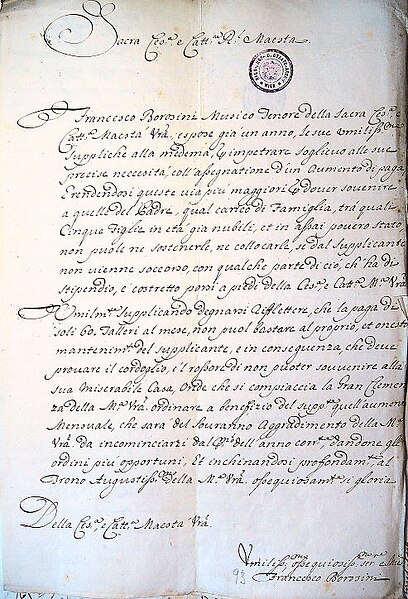 Sacra Ces.ª e Catt.ª R.l Maestà
Francesco Borosini Musico Tenore della Sacra Ces.ª e
Catt.ª Maestà Vrã, espose già un anno, le sue umiliss.me
suppliche alla medema, p impetrare soglievo alle sue
precise necessità, coll'assegnatione d'un Aumento di paga
e rendendosi queste via più maggiori p dover sovenire
a quelle del Padre, qual carico di Famiglia, trà quali
Cinque Figlie in età già nubili, et in assai povero stato
non puole ne sostenerle, ne collocarle, se dal supplicante
non vienne soccorso, con qualche parte di ciò, ch'hà di
stipendio, è costretto porsi a piedi della Ces.ª e Catt.ª M.tà Vrã
Umilm.te supplicando degnarsi riflettere, che la paga di
soli 60. Talleri al mese, non puol bastare al proprio, et onesto
mantenim.to del supplicante, e in consequenza, che deve
provare il cordoglio, e i rossore di non puoter souvenire alla
sua Miserabile Casa, Onde che si compiaccia la Gran Clemen-
za della M.tà Vrã. ordinare a benefizio del supp.te quell'aumento
Mensuale, che sarà del Souranno Aggradimento della M.tà
Vrã. da incominciarsi dal P.mo dell'anno corr.te, dandone gli
ordini più opportuni, Et enchinandosi profondam.te al
Trono Augustiss.mo della M.tà Vrã. ossequiosam.te si gloria
Della Ces.ª e Catt.ª Maestà Vrã.
Umiliss.mo ossequiosiss.mo ser.re
Francesco Borosini
93